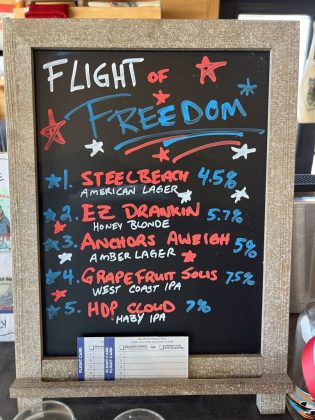 FLIGHT OF
FREEDOM
1. STEELBEACH 4.5%
AMERICAN LAGER
2. EZ DRANKIN 5.7%
HONEY BLONDE
3. ANCHORS AWEIGH 5%
AMBER LAGER
4. GRAPEFRUIT SOLIS 7.5%
WEST COAST IPA
5. HOP CLOUD 7%
HAZY IPA
FLIGHT CARD